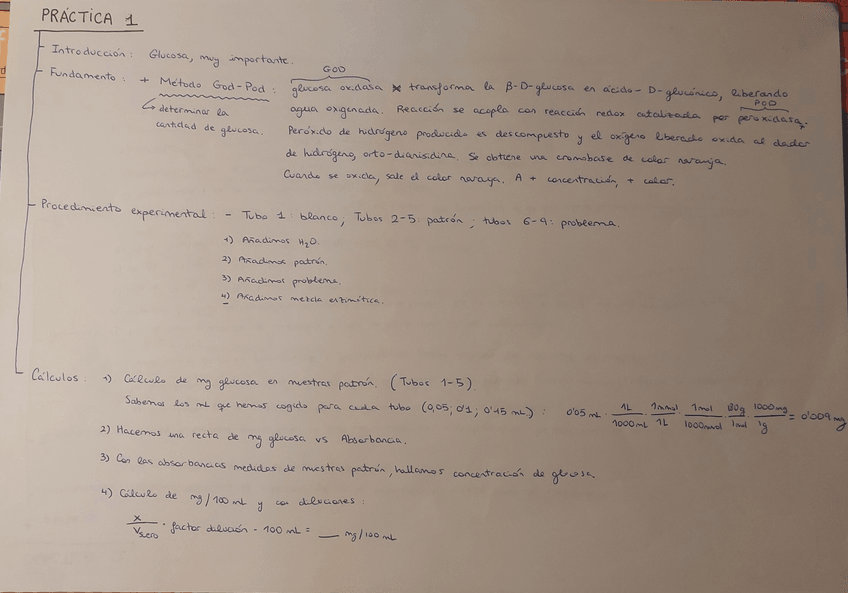 PRÁCTICA 1
Introducción: Glucosa, muy importante.
GOD
Fundamento: + Método God-Pod: glucosa oxidasa transforma la β-D-glucosa en ácido-D-glucónico, liberando
POD
↳ determinar la agua oxigenada. Reacción se acopla con reacción redox catalizada por peroxidasa.
cantidad de glucosa. Peróxido de hidrógeno producido es descompuesto y el oxígeno liberado oxida al dador
de hidrógeno, orto-dianisidina. Se obtiene una cromobase de color naranja.
Cuando se oxida, sale el color naranja. A + concentración, + color.
Procedimiento experimental: - Tubo 1: blanco; Tubos 2-5: patrón; tubos 6-9: problema.
1) Añadimos H₂O.
2) Añadimos patrón.
3) Añadimos problema.
4) Añadimos mezcla enzimática.
Cálculos: 1) Cálculo de mg glucosa en nuestras patrón. (Tubos 1-5)
Sabemos los mL que hemos cogido para cada tubo (0,05; 0'1; 0'15 mL): 0'05 mL · 1L/1000mL · 1mmol/1L · 1mol/1000mmol · 180g/1mol · 1000mg/1g = 0'009 mg
2) Hacemos una recta de mg glucosa vs Absorbancia.
3) Con las absorbancias medidas de nuestras patrón, hallamos concentración de glucosa.
4) Cálculo de mg/100 mL y con diluciones:
x/Vsuero · factor dilución · 100 mL = __ mg/100 mL